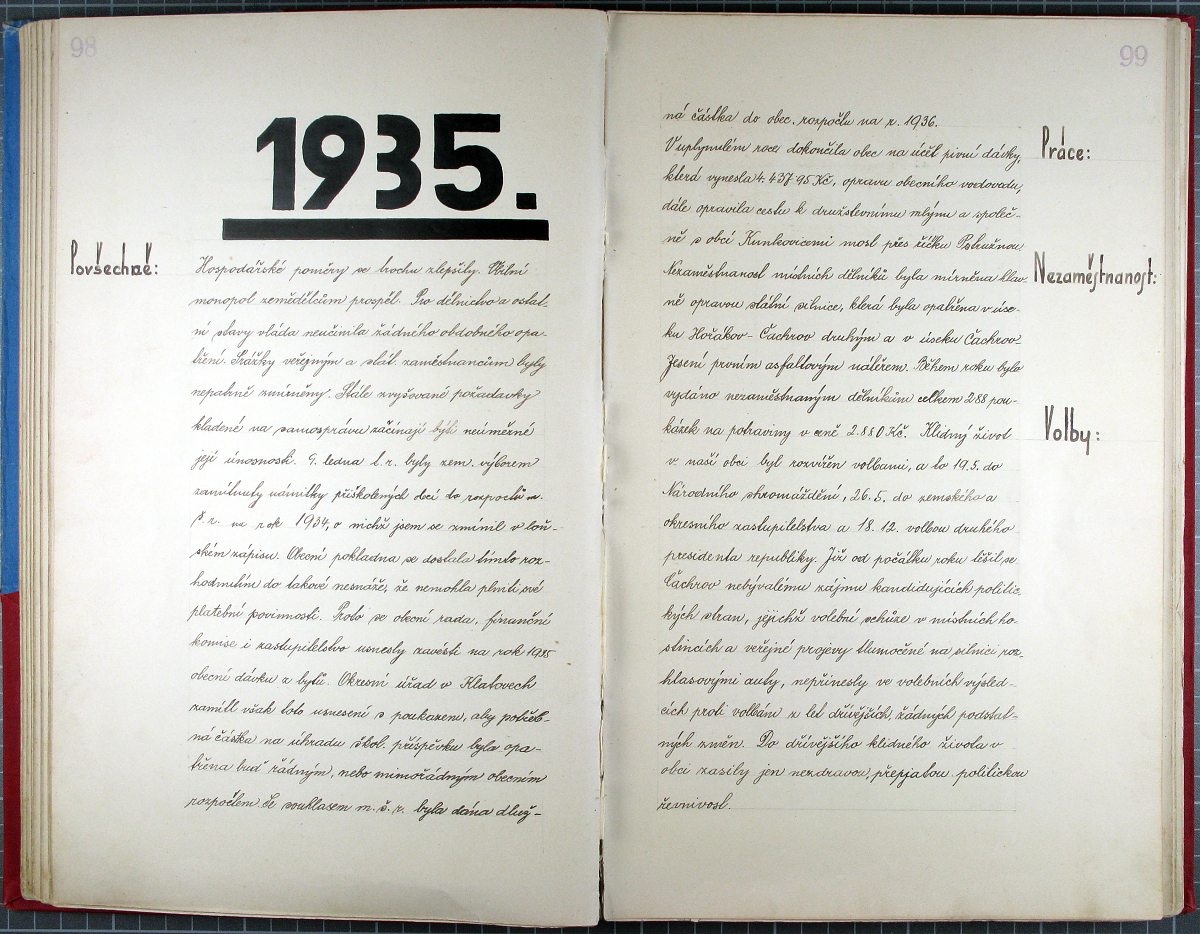 98
1935.
Povšechně:
Hospodářské poměry se trochu zlepšily. Obilní
monopol zemědělcům prospěl. Pro dělnictvo a ostat-
ní stavy vláda neučinila žádného obdobného opa-
tření. Srážky veřejným a stát. zaměstnancům byly
nepatrně zmírněny. Stále zvyšované požadavky
kladené na samosprávu začínají býti neúměrné
její únosnosti. 9. ledna t. r. byly zem. výborem
zamítnuty námitky přiškolených obcí do rozpočtů m.
š. r. na rok 1934, o nichž jsem se zmínil v loň-
ském zápisu. Obecní pokladna se dostala tímto roz-
hodnutím do takové nesnáze, že nemohla plniti své
platební povinnosti. Proto se obecní rada, finanční
komise i zastupitelstvo usnesly zavésti na rok 1935
obecní dávku z bytů. Okresní úřad v Klatovech
zamítl však toto usnesení s poukazem, aby potřeb-
ná částka na úhradu škol. příspěvku byla opa-
třena buď řádným, nebo mimořádným obecním
rozpočtem. Se souhlasem m. š. r. byla dána dluž-
99
ná částka do obec. rozpočtu na r. 1936.
Práce:
V uplynulém roce dokončila obec na účet pivní dávky,
která vynesla 4.437 95 Kč, opravu obecního vodovodu,
dále opravila cestu k družstevnímu mlýnu a společ-
ně s obcí Kunkovicemi most přes říčku Pstružnou.
Nezaměstnanost:
Nezaměstnanost místních dělníků byla mírněna hlav-
ně opravou státní silnice, která byla opatřena v úse-
ku Hořákov - Čachrov druhým a v úseku Čachrov
Jesení prvním asfaltovým nátěrem. Během roku bylo
vydáno nezaměstnaným dělníkům celkem 288 pou-
kázek na potraviny v ceně 2.880 Kč. Klidný život
Volby:
v naší obci byl rozvířen volbami, a to 19.5. do
Národního shromáždění, 26.5. do zemského a
okresního zastupitelstva a 18. 12. volbou druhého
presidenta republiky. Již od počátku roku těšil se
Čachrov nebývalému zájmu kandidujících politic-
kých stran, jejichž volební schůze v místních ho-
stincích a veřejné projevy tlumočené na silnici roz-
hlasovými auty, nepřinesly ve volebních výsled-
cích proti volbám z let dřívějších, žádných podstat-
ných změn. Do dřívějšího klidného života v
obci zasily jen nezdravou, přepjatou politickou
řevnivost.